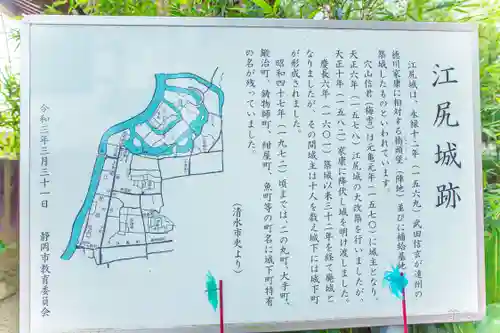 江尻城跡
江尻城は、永禄十二年(一五六九)武田信玄が遠州の
徳川家康に相対する橋頭堡(陣地)並びに補給基地
築城したものといわれています。
穴山信君(梅雪)は元亀元年(一五七〇)に城主となり、
天正六年(一五七八)江尻城の大改築を行いましたが、
天正十年(一五八二)家康に降伏し城を明け渡しました。
慶長六年(一六〇一)築城以来三十二年を経て廃城と
なりましたが、その間城主は十人を数え城下には城下町
が形成されました。
昭和四十七年(一九七二)頃までは、二の丸町、大手町、
鍛治町、鋳物師町、紺屋町、魚町等の町名に城下町特有
の名が残っていました。
(清水市史より)
令和三年三月三十一日
静岡市教育委員会